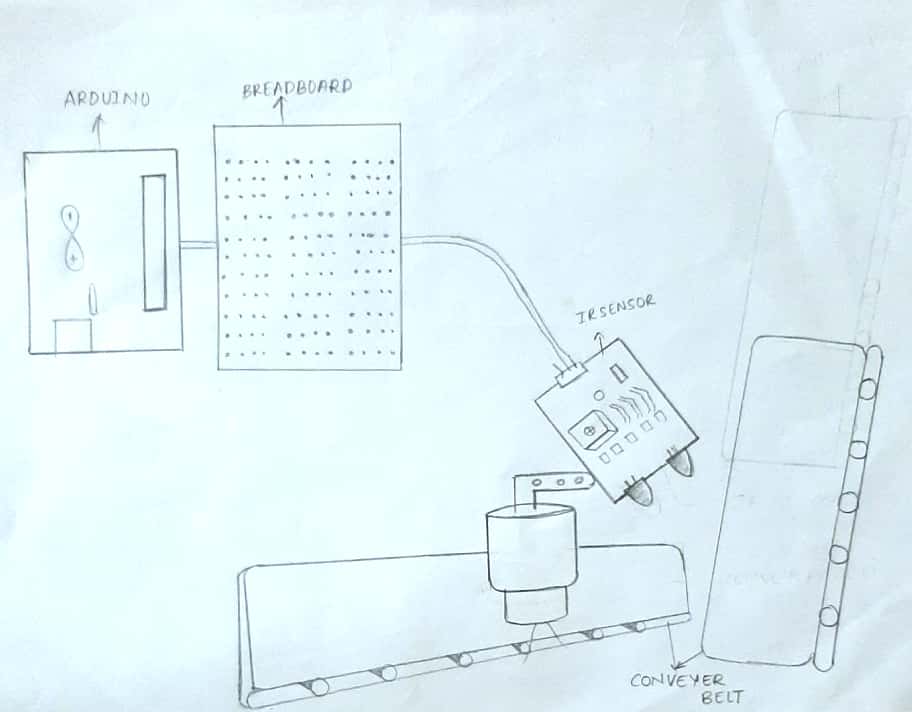 ARDUINO
BREADBOARD
IRSENSOR
CONVEYER
BELT